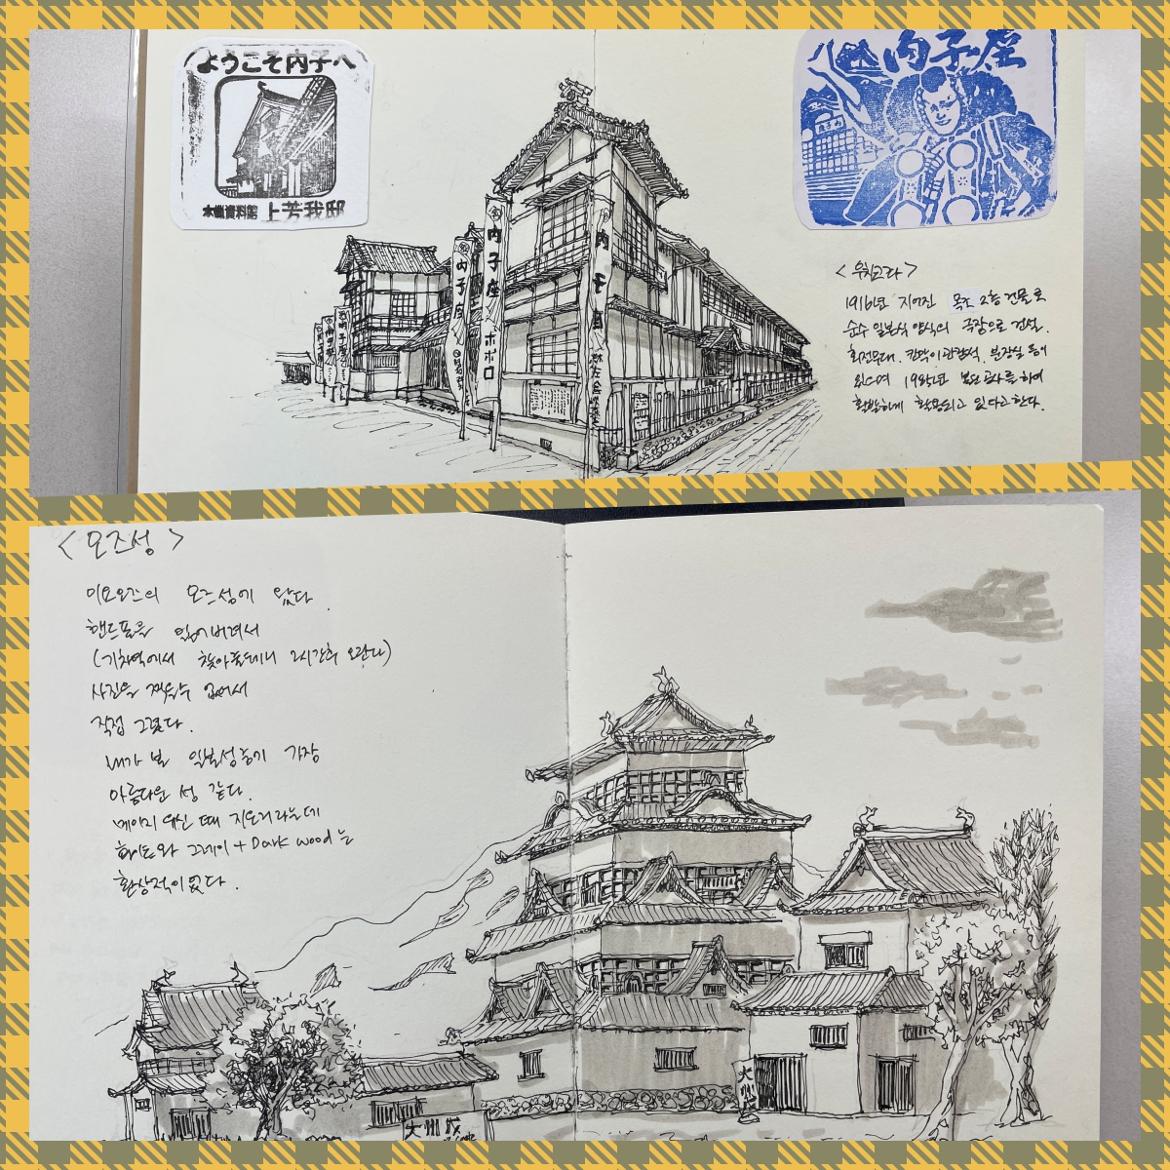 ようこそ内子へ
木蝋資料館 上芳我邸
内子座
内子座
内子座
内子座
ホポロ
<우치코좌>
1916년 지어진 목조 2층 건물로
순수 일본식 양식의 극장으로 건설.
회전무대. 칸막이 관람석. 분장실 등이
있으며 1985년 복원 공사를 하여
활발하게 활용되고 있다고 한다.
<오즈성>
이요오즈의 오즈성에 왔다.
핸드폰을 잃어버려서
(기차역에서 찾아줬는데 2시간후 오란다)
사진을 찍을수 없어서
직접 그렸다.
내가 본 일본성중에 가장
아름다운 성 같다.
메이지 유신 때 지도라는데
화이트와 그레이 + Dark wood 는
환상적이었다.
大州城
大州